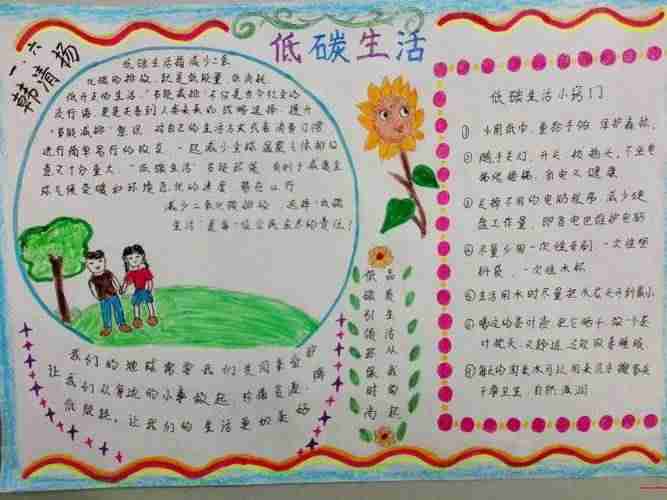 低碳生活
一.六
韩清扬
低碳生活指减少二氧
化碳的排放,就是低能量、低消耗、
低开支的生活。"节能减排",不仅是当今社会的
流行语,更是关系到人类未来的战略选择。提升
"节能减排"意识,对自己的生活方式或消费习惯
进行简单易行的改变,一起减少全球温室气体
意义十分重大。"低碳生活"节能环保,有利于减缓全
球气候变暖和环境恶化的速度,势在必行
减少二氧化碳排放,选择"低碳
生活"是每位公民应尽的责任!
我们的地球需要我们共同来爱护
让我们从身边的小事做起,珍惜资源,降
低能耗,让我们的生活更加美好
低碳引领环保时尚
品质生活从我做起
低碳生活小窍门
① 少用纸巾,重拾手帕,保护森林,
② 随手关灯、开关、拔插头,不坐电
梯爬楼梯,省电又健康
③ 关掉不用的电脑程序,减少硬
盘工作量,即省电也维护电脑
④ 尽量少用一次性牙刷、一次性塑
料袋、一次性水杯
⑤ 生活用水时尽量把水龙头开到最小
⑥ 喝过的茶叶渣,把它晒干,做一个茶
叶枕头,又舒适,还能改善睡眠
⑦
干净卫生,自然滋润